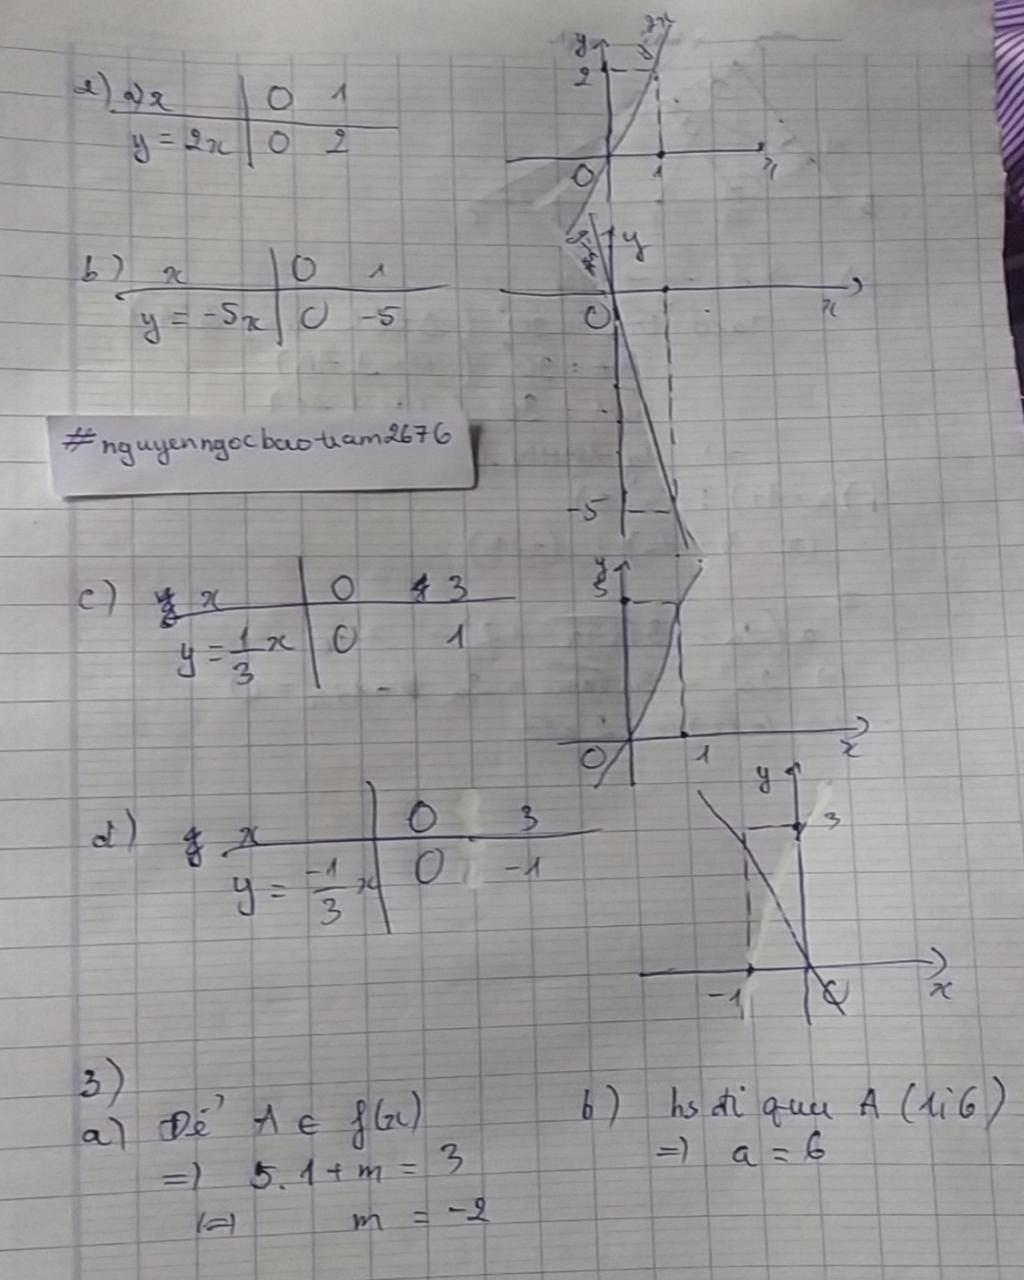 a) x | 0 1
y = 2x | 0 2
y
2
O
1
x
b) x | 0 1
y = -5x | 0 -5
y
x
O
-5
#nguyenngocbaotram2676
c) x | 0 3
y = 1/3 x | 0 1
y
3
O
1
x
d) x | 0 3
y = -1/3 x | 0 -1
y
3
-1
x
3)
a) Để A ∈ f(x)
=> 5.1 + m = 3
<=> m = -2
b) hs đi qua A (1;6)
=> a = 6